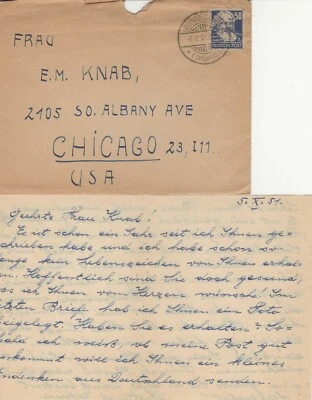 FRAU
E.M. KNAB,
2105 SO. ALBANY AVE
CHICAGO 23, Ill..
USA
50
DEUTSCHE POST
5. X. 51.
Geehrte Frau Knab!
Es ist schon ein Jahr seit ich Ihnen ge-
schrieben habe und ich habe schon so
lange kein Lebenszeichen von Ihnen erhal-
Hoffentlich sind Sie doch gesund,
was ich Ihnen vom Herzen wünsche! Im
letzten Brief hab ich Ihnen ein Foto
beigelegt. Haben Sie es erhalten? So-
bald ich weiß, ob meine Post gut
ankommt will ich Ihnen ein kleines
Andenken aus Deutschland senden.